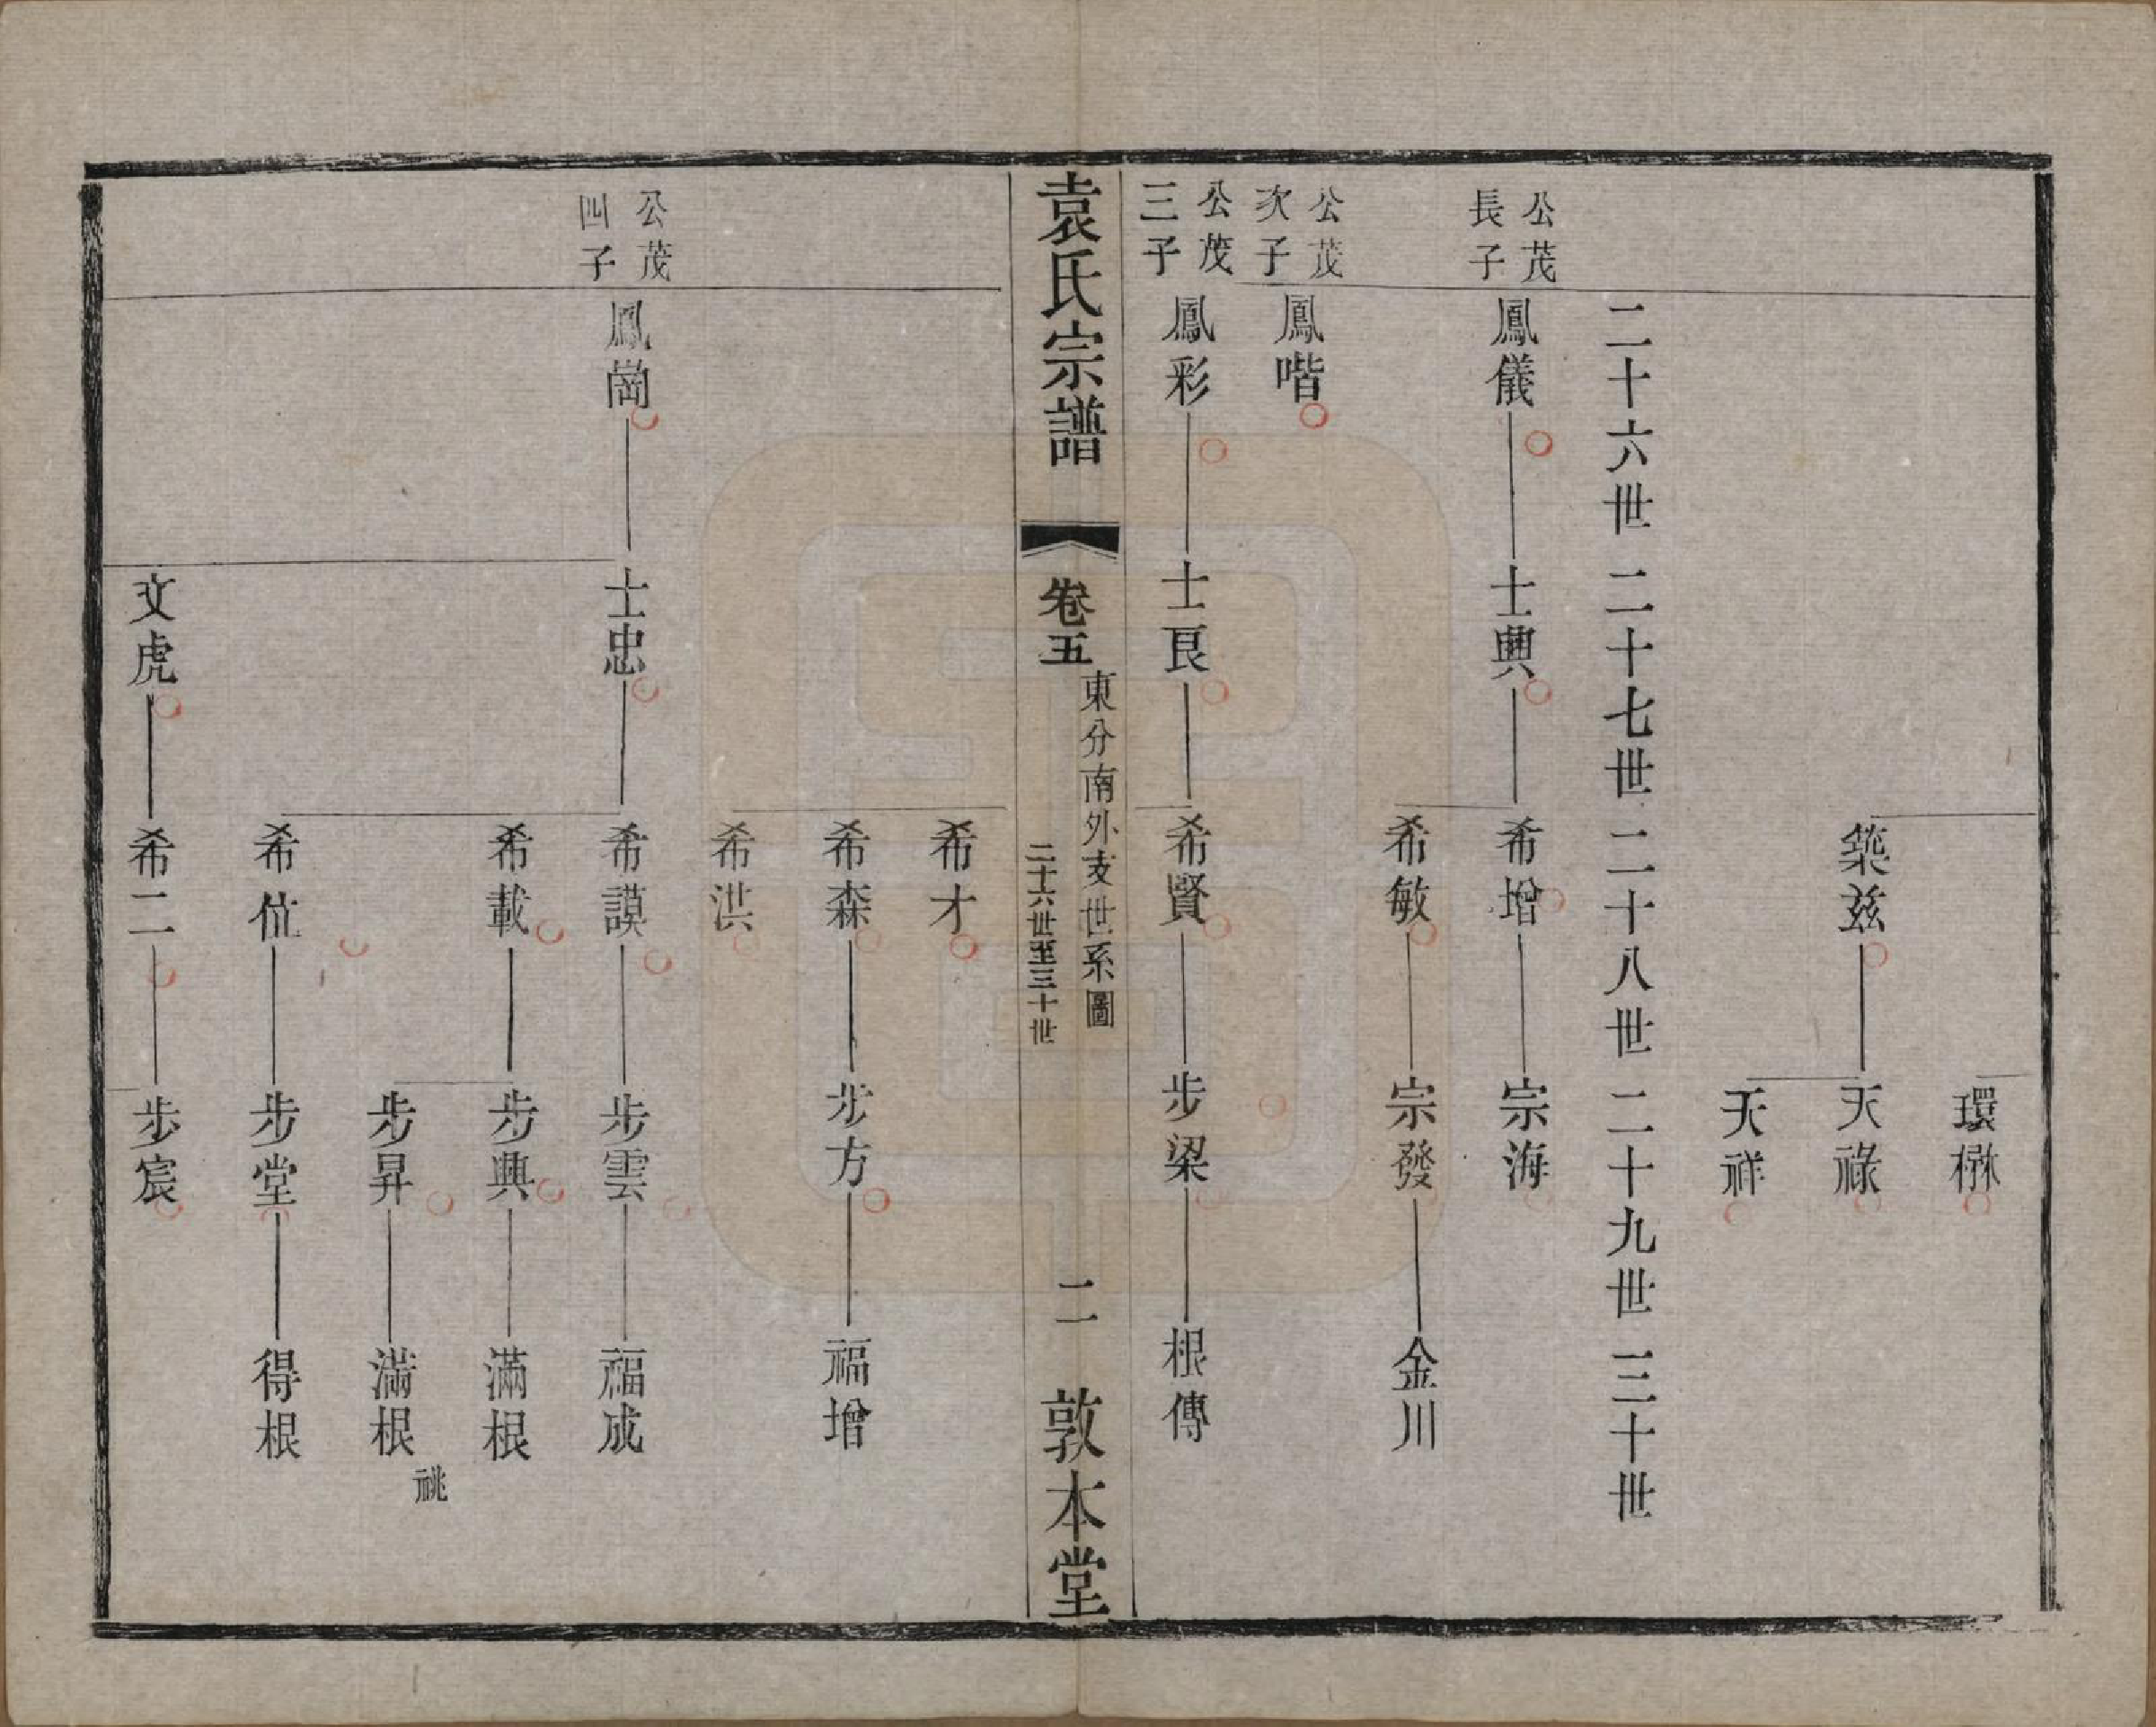 環楙
築兹 天祿
天祥
二十六世 二十七世 二十八世 二十九世 三十世
公茂長子 鳳儀 士興 希增 宗海
希敏 宗發 金川
公茂次子 鳳喈
公茂三子 鳳彩 士良 希賢 步梁 根傳
袁氏宗譜 卷五 東分南外支世系圖 二十六世至三十世 二 敦本堂
希才
希森 步方 福增
希洪
公茂四子 鳳崗 士忠 希謨 步雲 福成
希載 步興 滿根
步昇 滿根 祧
希位 步堂 得根
文虎 希二 步宸